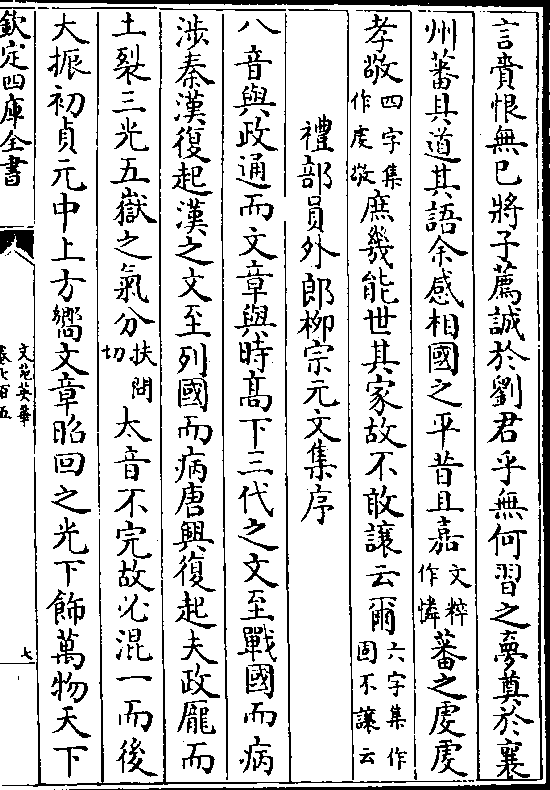 言賫恨無已將子薦誠於劉君乎無何習之夢奠於襄
州蕃具道其語余感相國之平昔且嘉文粹作憐蕃之虔虔
孝敬四字集作虔敬庶幾能世其家故不敢讓云爾六字集作固不讓云
禮部員外郎柳宗元文集序
八音與政通而文章與時髙下三代之文至戰國而病
渉秦漢復起漢之文至列國而病唐興復起夫政龎而
土裂三光五嶽之氣分扶問切太音不完故必混一而後
大振初貞元中上方嚮文章昭回之光下飾萬物天下
欽定四庫全書
文苑英華
卷七百五
七